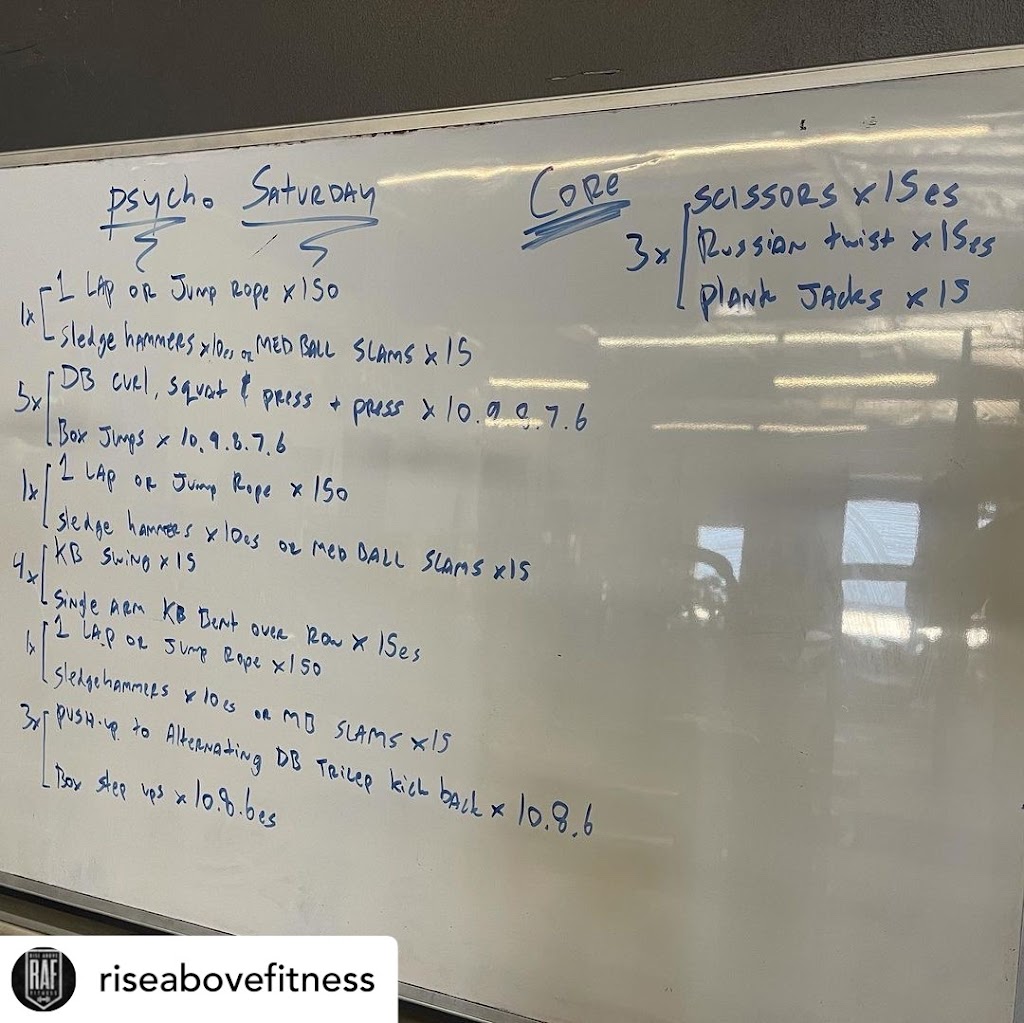 Psycho Saturday
1x
1 LAP or Jump Rope x150
Sledge hammers x10es or MED BALL SLAMS x15
5x
DB curl, squat & press + press x 10.9.8.7.6
Box Jumps x 10.9.8.7.6
1x
1 LAP or Jump Rope x 150
sledge hammers x10es or MED BALL SLAMS x15
4x
KB Swing x15
Single ARM KB Bent over Row x 15es
1x
1 LAP or Jump Rope x150
Sledgehammers x10es or MB SLAMS x15
3x
PUSH-up to Alternating DB Tricep kick back x 10.8.6
Box step ups x 10.8.6es
CORE
3x
SCISSORS x15es
Russian twist x15es
Plank Jacks x15
RISE ABOVE
RAF
FITNESS
riseabovefitness